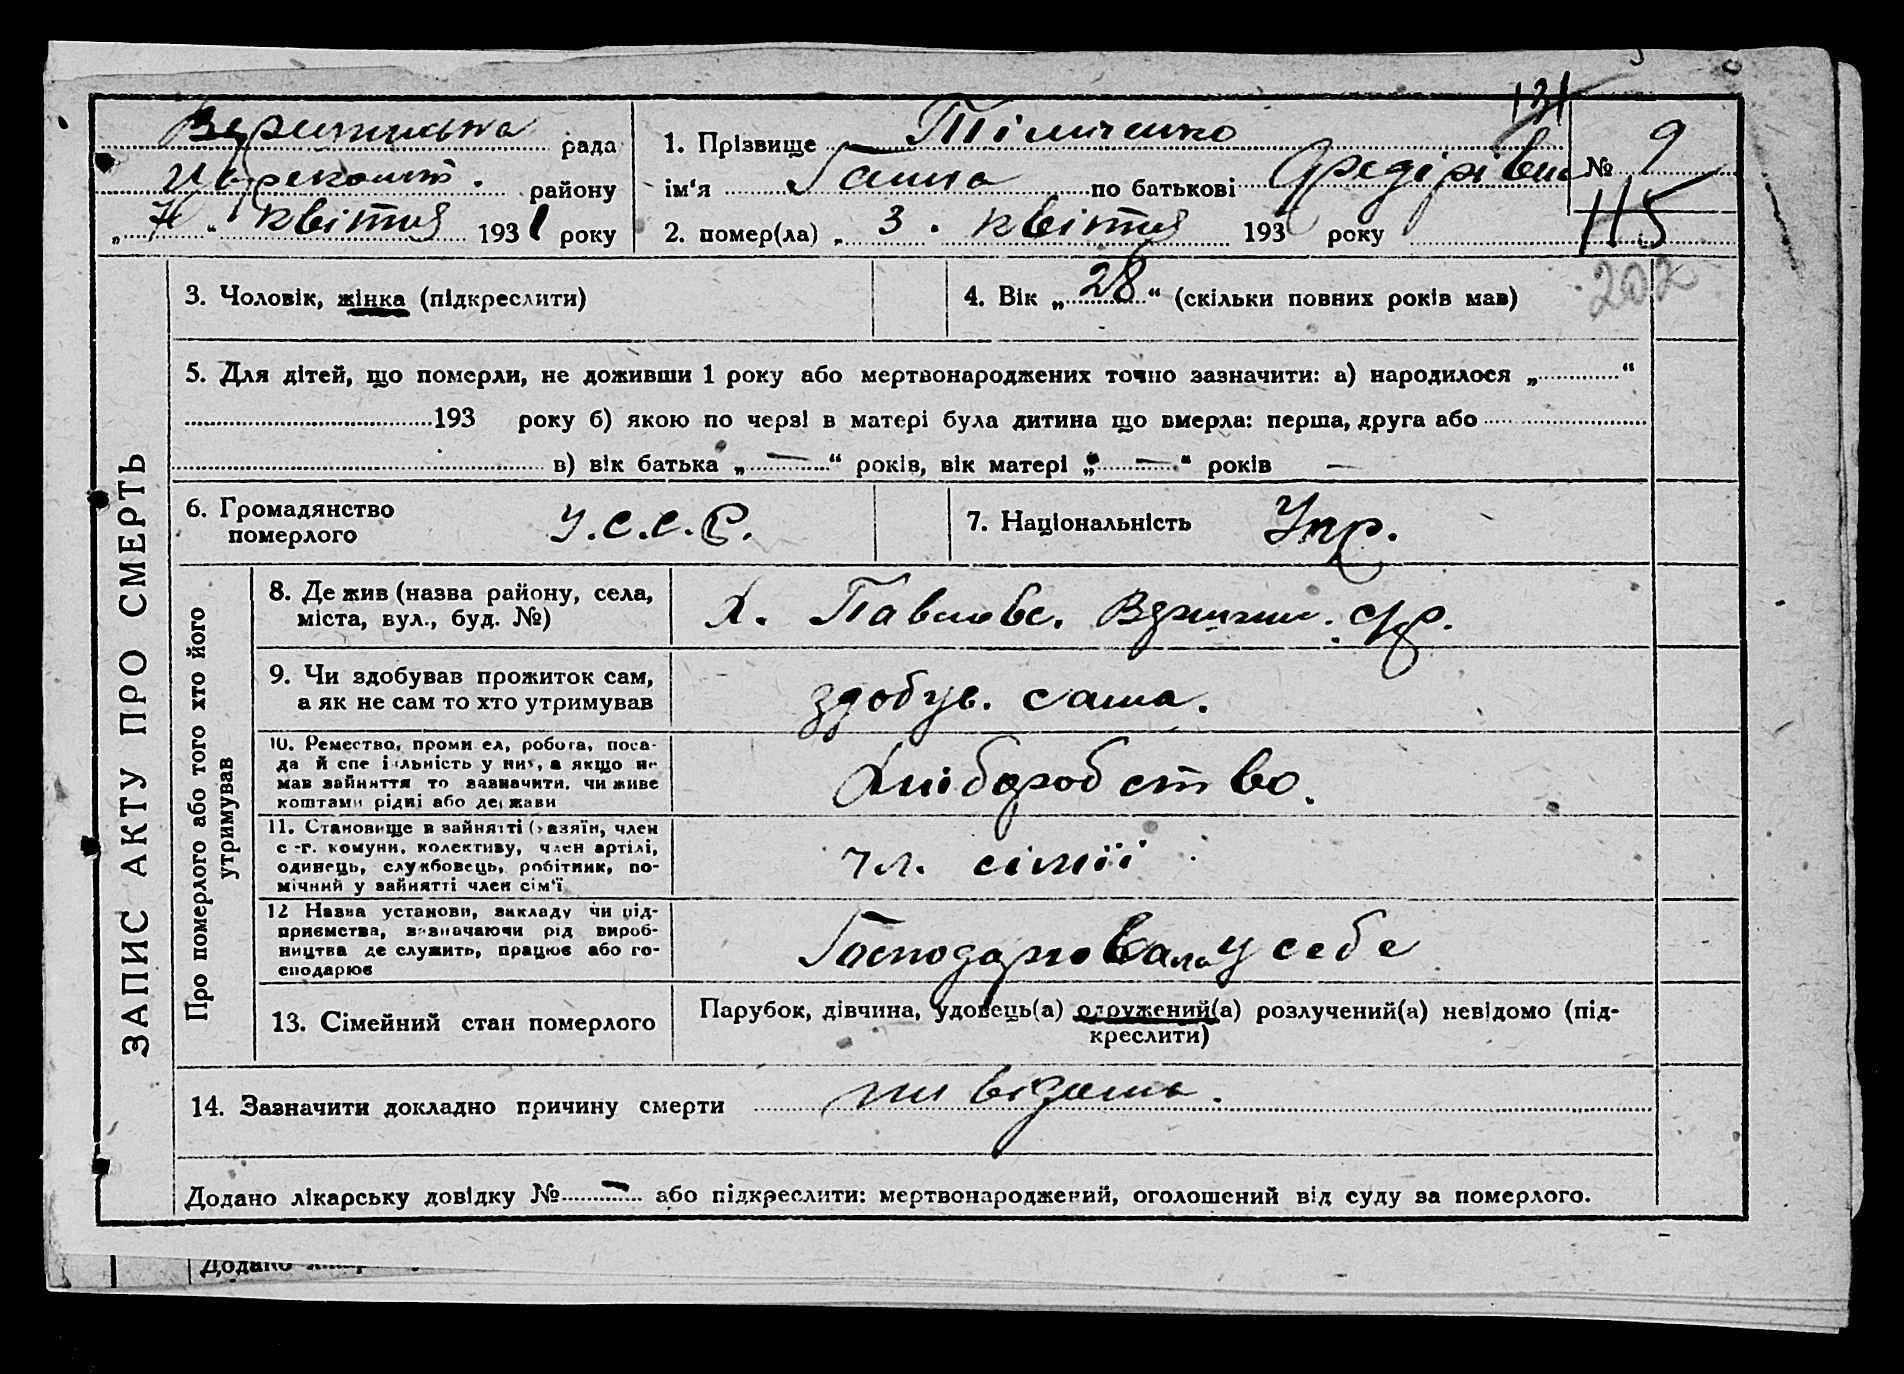 131
рада
1. Прізвище Тімченко
№ 9
району
ім'я Ганна по батькові Федірівна
115
квітня 1931 року
2. помер(ла) „ 3 . квітня 193 року
202
3. Чоловік, жінка (підкреслити)
4. Вік „ 28 “ (скільки повних років мав)
5. Для дітей, що померли, не доживши 1 року або мертвонароджених точно зазначити: а) народилося „ “
193 року б) якою по черзі в матері була дитина що вмерла: перша, друга або
в) вік батька „ — “ років, вік матері „ — “ років —
6. Громадянство
померлого
У.С.С.Р.
7. Національність Укр.
ЗАПИС АКТУ ПРО СМЕРТЬ
Про померлого або того хто його
утримував
8. Де жив (назва району, села,
міста, вул., буд. №)
Х. Павлівс.
9. Чи здобував прожиток сам,
а як не сам то хто утримував
здобув. сама.
10. Ремество, промисел, робота, поса-
да й спеціяльність у них, а якщо не
мав зайняття то зазначити, чи живе
коштами рідні або держави
Хліборобство.
11. Становище в зайнятті (хазяїн, член
с.-г. комуни, колективу, член артілі,
одинець, службовець, робітник, по-
мічний у зайнятті член сім'ї
чл. сімії
12 Назва установи, закладу чи під-
приємства, зазначаючи рід вироб-
ництва де служить, працює або го-
сподарює
Господарювала у себе
13. Сімейний стан померлого
Парубок, дівчина, удовець(а) одружений(а) розлучений(а) невідомо (під-
креслити)
14. Зазначити докладно причину смерти
Додано лікарську довідку № — або підкреслити: мертвонароджений, оголошений від суду за померлого.
Додано